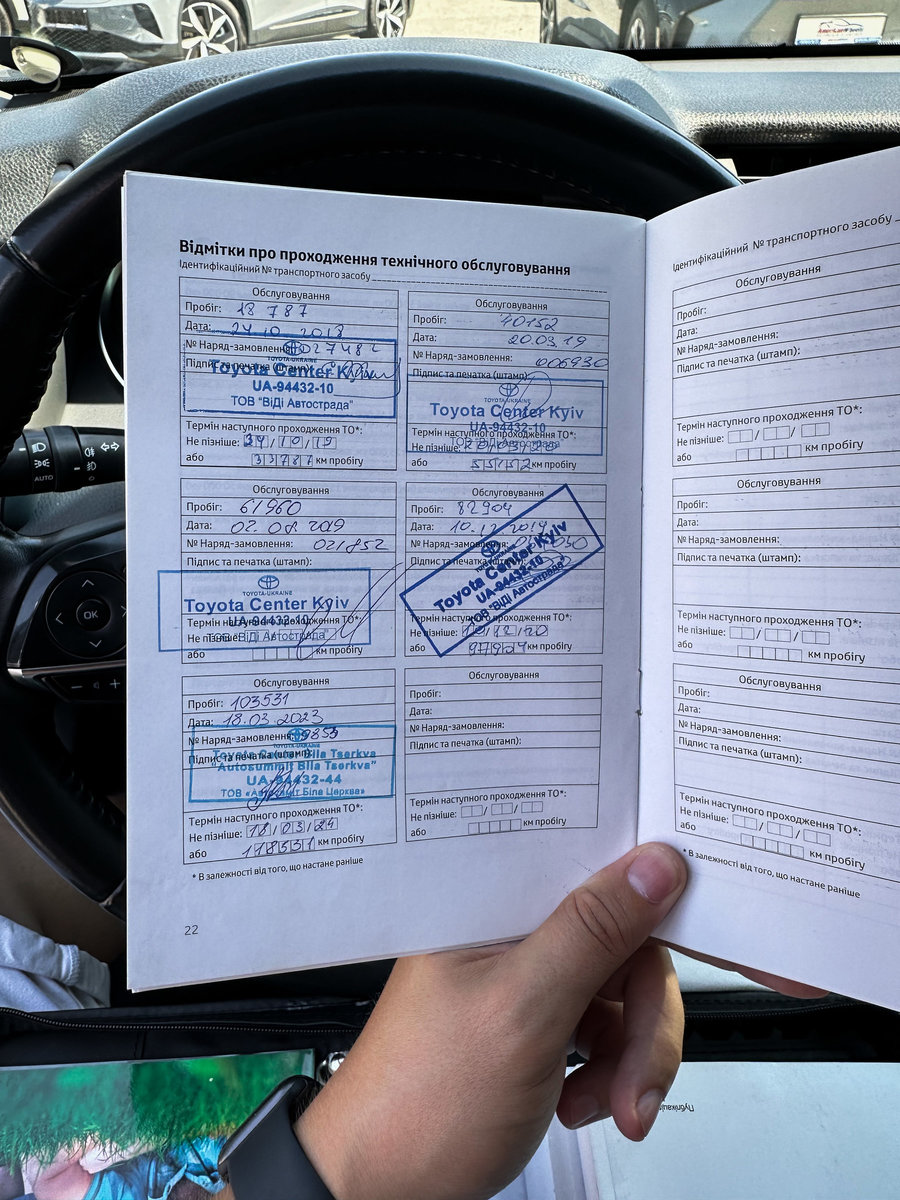 Відмітки про проходження технічного обслуговування
Ідентифікаційний № транспортного засобу
Обслуговування
Пробіг: 18 787
Дата: 24.10.2018
№ Наряд-замовлення:
Підпис та печатка (штамп):
TOYOTA-UKRAINE
Toyota Center Kyiv
UA-94432-10
ТОВ "ВіДі Автострада"
Термін наступного проходження ТО*:
Не пізніше: 24/10/19
або 33787 км пробігу
Обслуговування
Пробіг: 40152
Дата: 20.03.19
№ Наряд-замовлення: 006930
Підпис та печатка (штамп):
TOYOTA-UKRAINE
Toyota Center Kyiv
UA-94432-10
ТОВ "ВіДі Автострада"
Термін наступного проходження ТО*:
Не пізніше: 20/03/20
або 55152 км пробігу
Обслуговування
Пробіг: 61960
Дата: 02.08.2019
№ Наряд-замовлення: 021852
Підпис та печатка (штамп):
TOYOTA-UKRAINE
Toyota Center Kyiv
UA-94432-10
ТОВ "ВіДі Автострада"
Термін наступного проходження ТО*:
Не пізніше:
або км пробігу
Обслуговування
Пробіг: 82904
Дата: 10.12.2019
№ Наряд-замовлення:
Підпис та печатка (штамп):
TOYOTA-UKRAINE
Toyota Center Kyiv
UA-94432-10
ТОВ "ВіДі Автострада"
Термін наступного проходження ТО*:
Не пізніше: 10/12/20
або км пробігу
Обслуговування
Пробіг: 103531
Дата: 18.03.2023
№ Наряд-замовлення:
Підпис та печатка (штамп):
TOYOTA-UKRAINE
Toyota Center Bila Tserkva
"Autosummit Bila Tserkva"
UA-94432-44
ТОВ «Автосаміт Біла Церква»
Термін наступного проходження ТО*:
Не пізніше: 18/03/24
або 118531 км пробігу
Обслуговування
Пробіг:
Дата:
№ Наряд-замовлення:
Підпис та печатка (штамп):
Термін наступного проходження ТО*:
Не пізніше:
або км пробігу
* В залежності від того, що настане раніше
22
Ідентифікаційний № транспортного засобу
Обслуговування
Пробіг:
Дата:
№ Наряд-замовлення:
Підпис та печатка (штамп):
Термін наступного проходження ТО*:
Не пізніше:
або км пробігу
Обслуговування
Пробіг:
Дата:
№ Наряд-замовлення:
Підпис та печатка (штамп):
Термін наступного проходження ТО*:
Не пізніше:
або км пробігу
Обслуговування
Пробіг:
Дата:
№ Наряд-замовлення:
Підпис та печатка (штамп):
Термін наступного проходження ТО*:
Не пізніше:
або км пробігу
* В залежності від того, що настане раніше
AUTO
OK